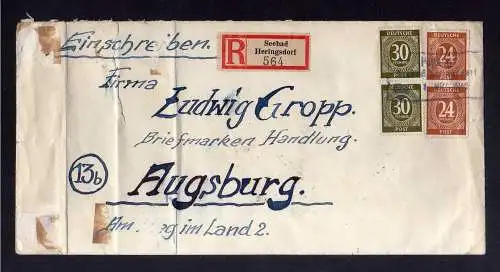 Einschreiben.
R
Seebad
Heringsdorf
564
DEUTSCHE
30
POST
DEUTSCHE
24
POST
DEUTSCHE
30
POST
DEUTSCHE
24
POST
Firma
Ludwig Gropp.
Briefmarken Handlung.
13b
Augsburg.
Am. g im Land 2.